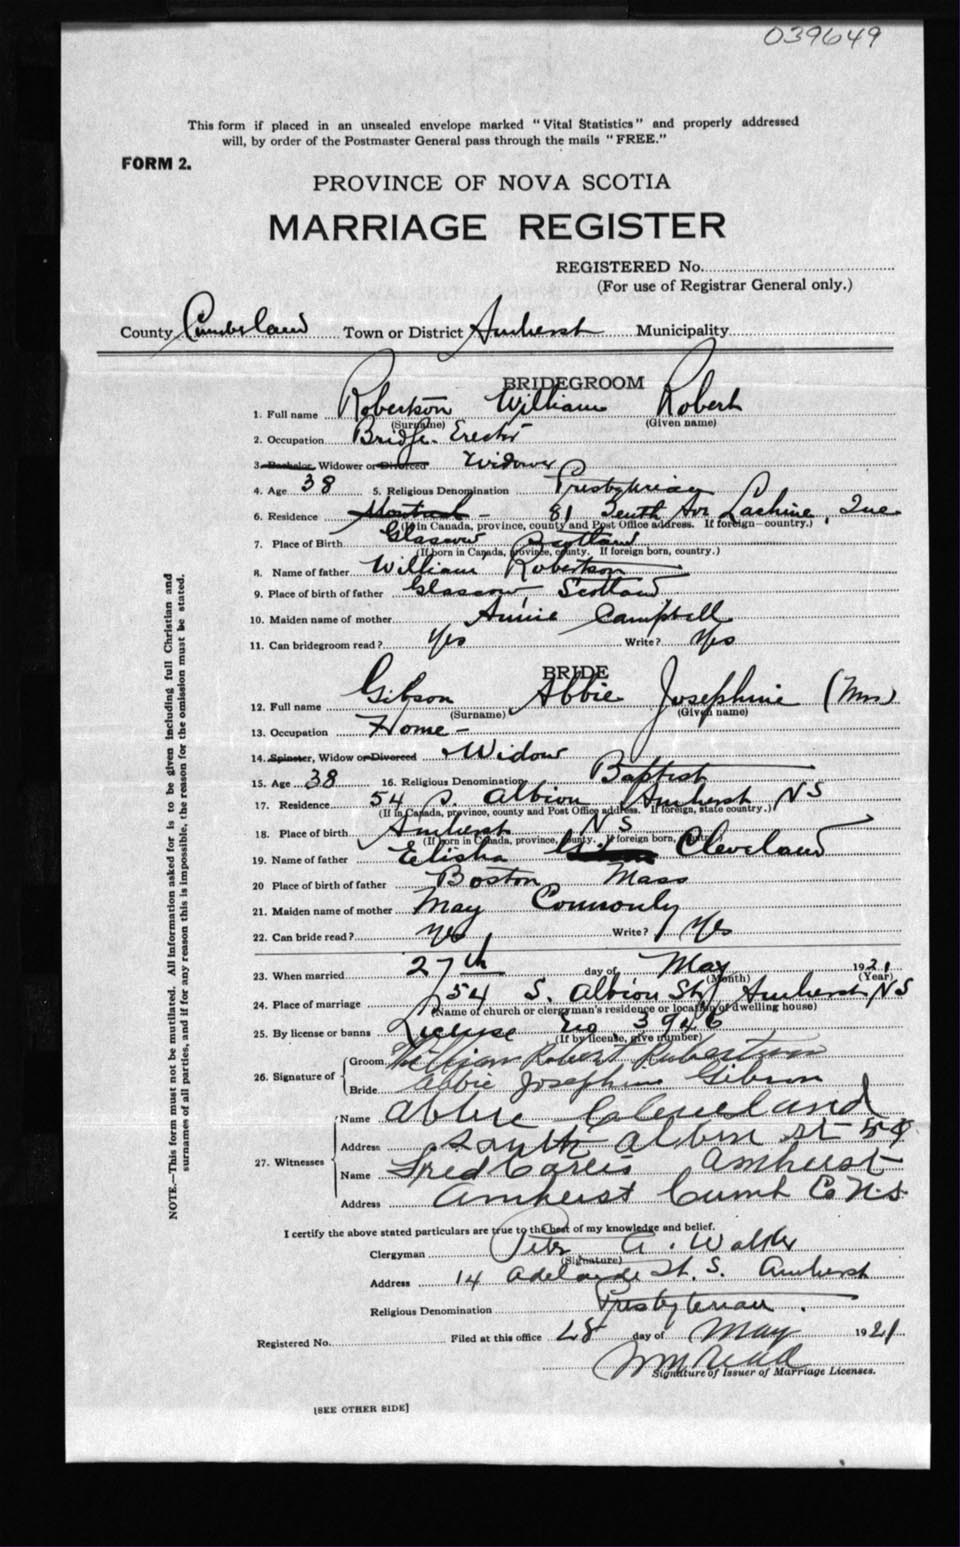 039649
This form if placed in an unsealed envelope marked "Vital Statistics" and properly addressed
will, by order of the Postmaster General pass through the mails "FREE."
FORM 2.
PROVINCE OF NOVA SCOTIA
MARRIAGE REGISTER
REGISTERED No.
(For use of Registrar General only.)
County Cumberland Town or District Amherst Municipality
BRIDEGROOM
1. Full name Robertson William Robert
(Surname) (Given name)
2. Occupation Bridge Erector
3. Bachelor, Widower or Divorced Widower
4. Age 38 5. Religious Denomination Presbyterian
6. Residence Montreal - 81 Tenth Ave Lachine, Que
(If in Canada, province, county and Post Office address. If foreign—country.)
7. Place of Birth Glasgow Scotland
(If born in Canada, province, county. If foreign born, country.)
8. Name of father William Robertson
9. Place of birth of father Glasgow, Scotland
10. Maiden name of mother Annie Campbell
11. Can bridegroom read? Yes Write? Yes
BRIDE
12. Full name Gibson Abbie Josephine (Mrs)
(Surname) (Given name)
13. Occupation Home -
14. Spinster, Widow or Divorced Widow
15. Age 38 16. Religious Denomination Baptist
17. Residence 54 S. Albion Amherst NS
(If in Canada, province, county and Post Office address. If foreign, state country.)
18. Place of birth Amherst NS
(If born in Canada, province, county. If foreign born, country.)
19. Name of father Elisha Cleveland
20 Place of birth of father Boston Mass
21. Maiden name of mother May Connonly
22. Can bride read? Yes Write? Yes
23. When married 27th day of May 1921
(Month) (Year)
24. Place of marriage 54 S. Albion St, Amherst NS
(Name of church or clergyman's residence or location of dwelling house)
25. By license or banns License No. 3946
(If by license, give number)
26. Signature of Groom William Robert Robertson
Bride Abbie Josephine Gibson
27. Witnesses Name Abbie Cleveland
Address South Albion St 54
Name Fred Amherst
Address Amherst Cumb Co N.S.
I certify the above stated particulars are true to the best of my knowledge and belief.
Clergyman Peter A. Walker
(Signature)
Address 14 Adelaide St. S. Amherst
Religious Denomination Presbyterian.
Registered No. Filed at this office 28 day of May 1921
Signature of Issuer of Marriage Licenses.
[SEE OTHER SIDE]
NOTE.—This form must not be mutilated. All information asked for is to be given including full Christian and
surnames of all parties, and if for any reason this is impossible, the reason for the omission must be stated.